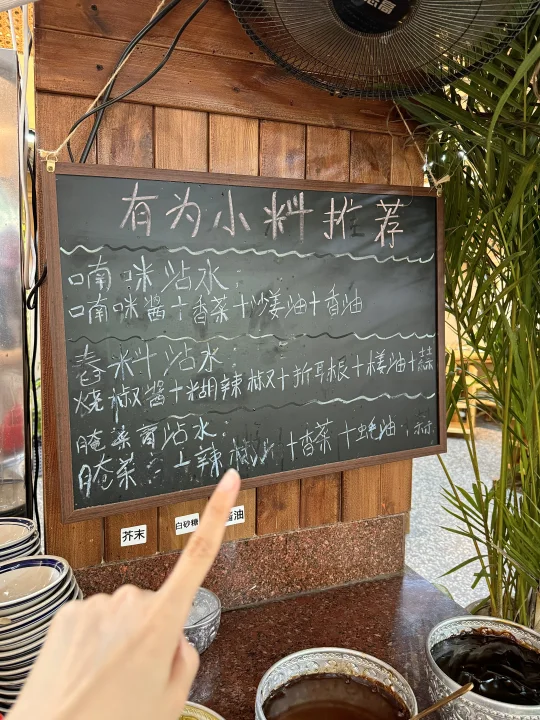 有为小料推荐
喃咪沾水:
喃咪酱+香菜+沙姜油+香油
舂米汁沾水:
烧椒酱+糊辣椒+折耳根+姜油+蒜
腌菜膏沾水:
腌菜 辣椒 +香菜+蚝油
芥末
白砂糖
油